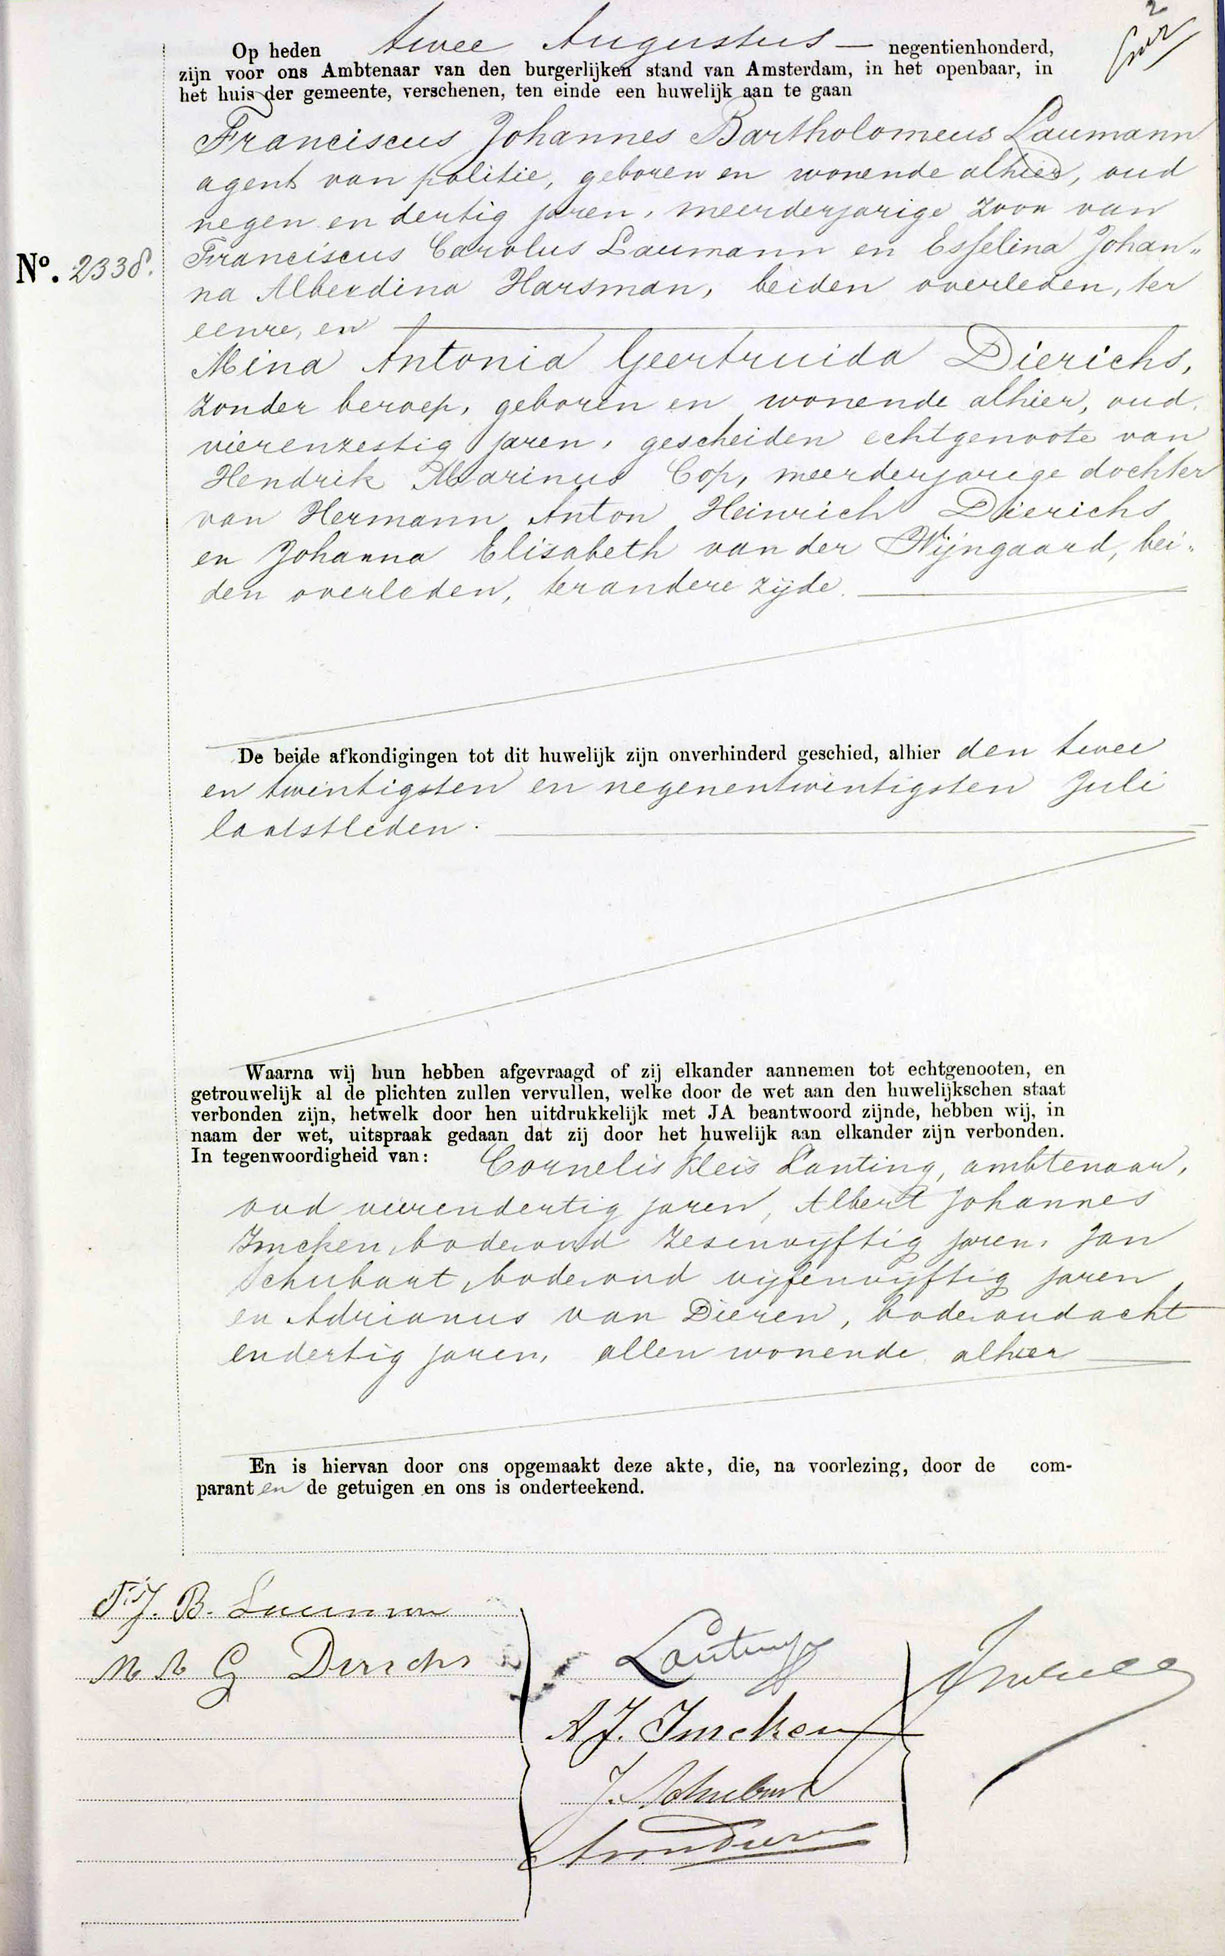 2
Op heden twee Augustus — negentienhonderd,
zijn voor ons Ambtenaar van den burgerlijken stand van Amsterdam, in het openbaar, in
het huis der gemeente, verschenen, ten einde een huwelijk aan te gaan
Franciscus Johannes Bartholomeus Laumann
agent van politie, geboren en wonende alhier, oud
negen en dertig jaren, meerderjarige zoon van
Franciscus Carolus Laumann en Esselina Johan„
No. 2338.
na Alberdina Harsman, beiden overleden, ter
eenre, en
Mina Antonia Geertruida Dierichs,
zonder beroep, geboren en wonende alhier, oud
vierenzestig jaren, gescheiden echtgenoote van
Hendrik Marinus Cop, meerderjarige dochter
van Hermann Anton Heinrich Dierichs
en Johanna Elisabeth van der Wijngaard, bei„
den overleden, ter andere zijde.
De beide afkondigingen tot dit huwelijk zijn onverhinderd geschied, alhier den twee
en twintigsten en negenentwintigsten Juli
laatstleden.
Waarna wij hun hebben afgevraagd of zij elkander aannemen tot echtgenooten, en
getrouwelijk al de plichten zullen vervullen, welke door de wet aan den huwelijkschen staat
verbonden zijn, hetwelk door hen uitdrukkelijk met JA beantwoord zijnde, hebben wij, in
naam der wet, uitspraak gedaan dat zij door het huwelijk aan elkander zijn verbonden.
In tegenwoordigheid van: Cornelis Kleis Lanting, ambtenaar,
oud vierendertig jaren, Albert Johannes
Imcken, bode, oud zesenvijftig jaren, Jan
Schubart, bode, oud vijfenvijftig jaren
en Adrianus van Dieren, bode, oud acht
endertig jaren, allen wonende alhier
En is hiervan door ons opgemaakt deze akte, die, na voorlezing, door de com-
parant en de getuigen en ons is onderteekend.
F. J. B. Laumann
M A G Dierichs
Lanting
A J. Imcken
J. Schubart
A van Dieren